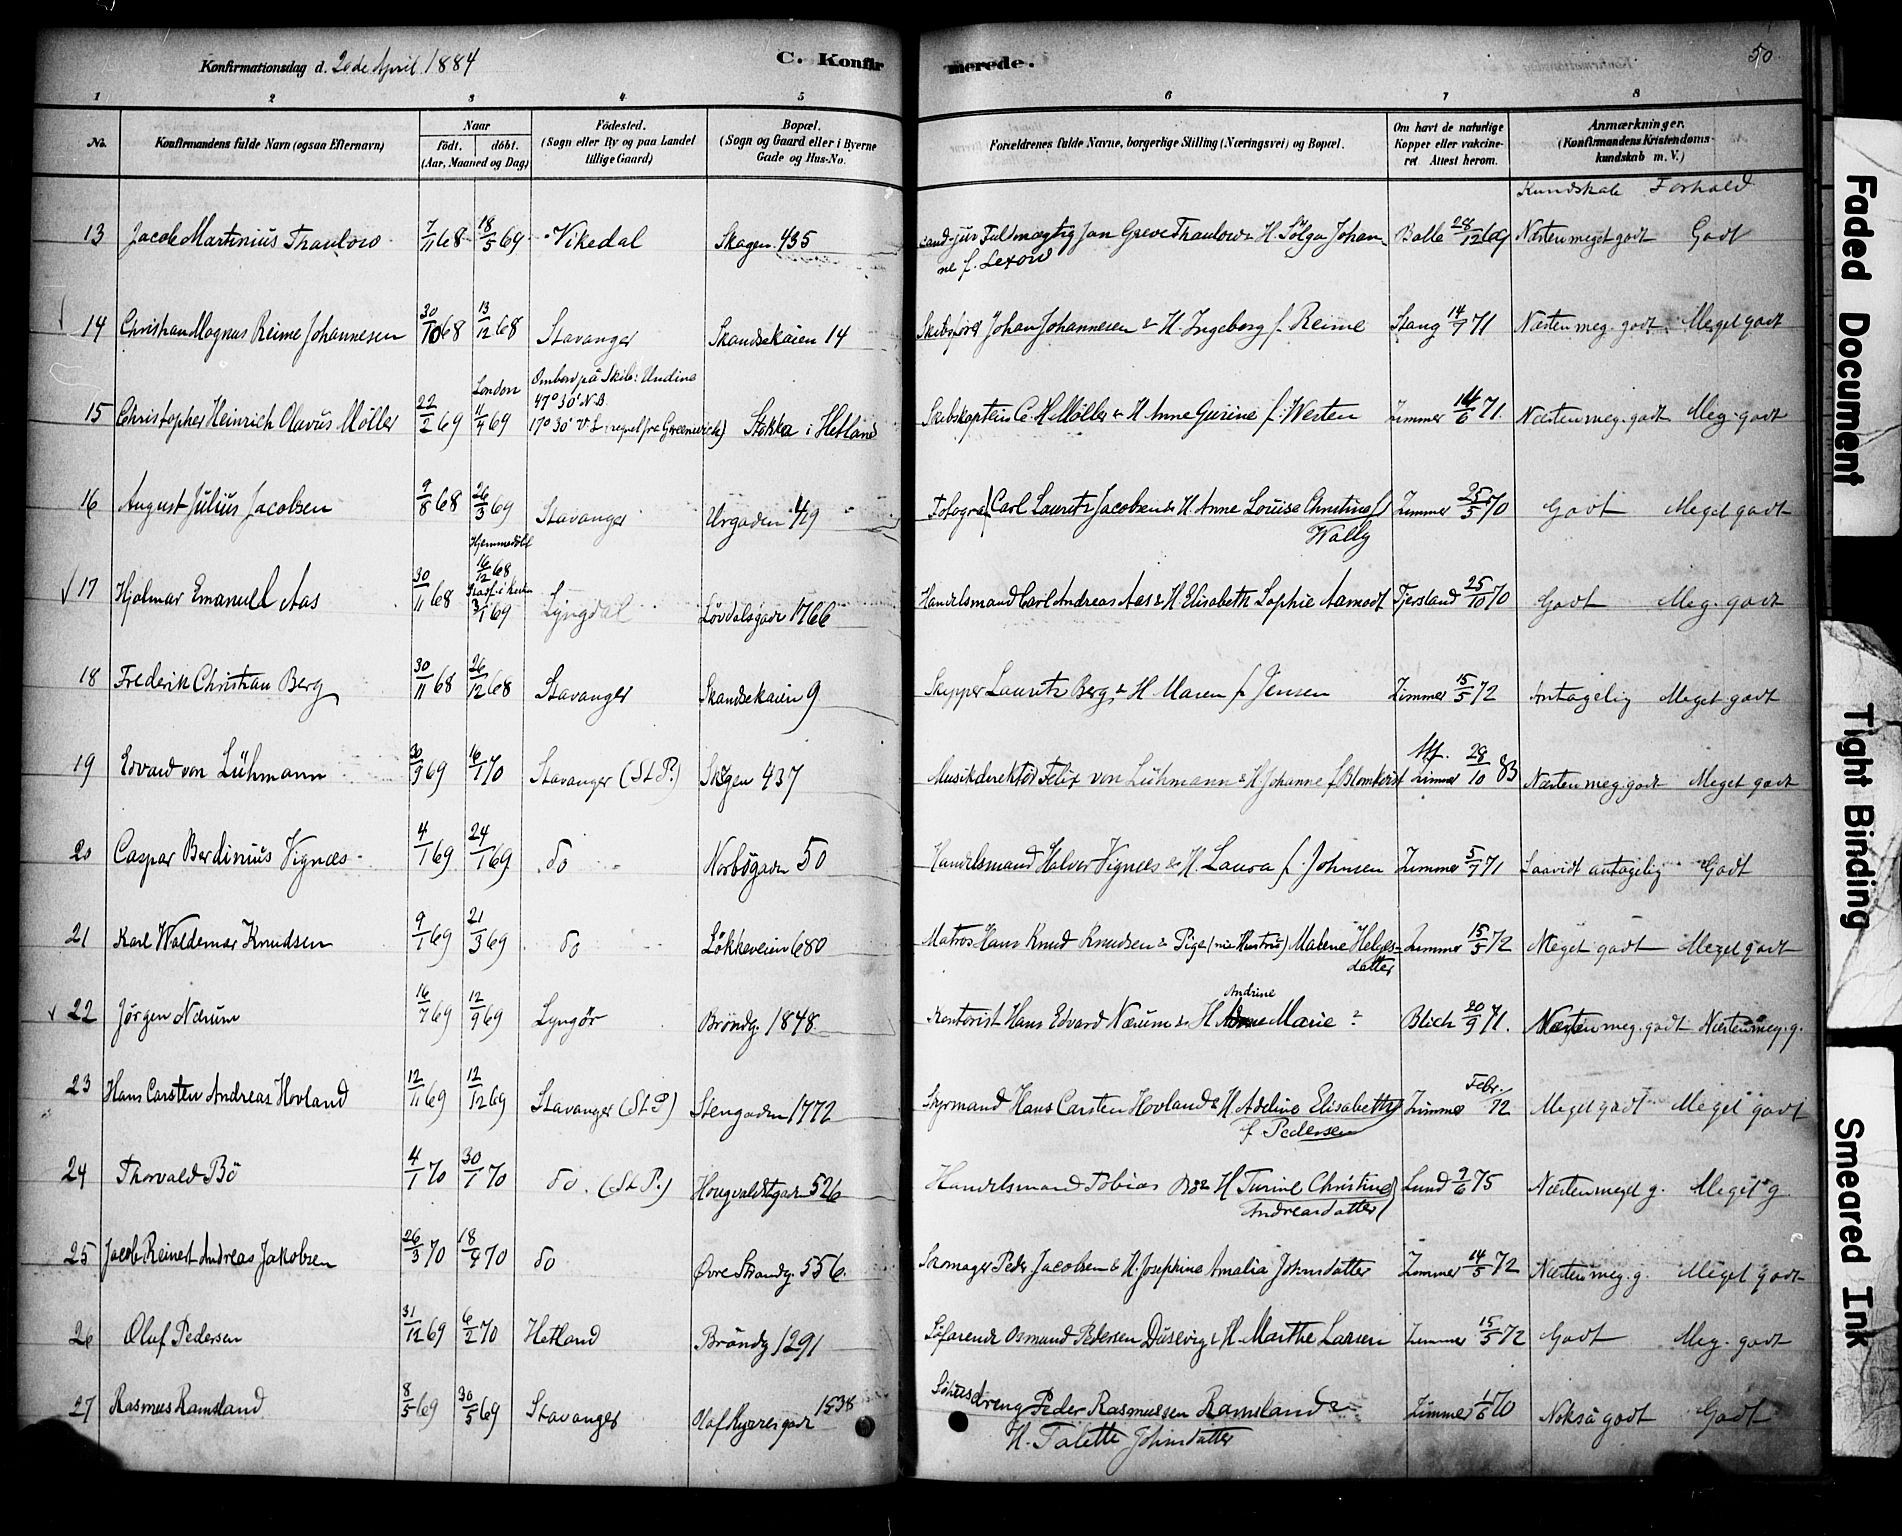 Konfirmationsdag d. 20de April 1884
C. Konfirmerede.
50.
1 2 3 4 5 6 7 8
No. Konfirmandens fulde Navn (ogsaa Efternavn) Naar født. døbt. (Aar, Maaned og Dag) Fødested. (Sogn eller By og paa Landet tillige Gaard) Bopæl. (Sogn og Gaard eller i Byerne Gade og Hus-No. Forældrenes fulde Navne, borgerlige Stilling (Næringsvei) og Bopæl. Om havt de naturlige Kopper eller vakcineret Attest herom. Anmærkninger. (Konfirmandens Kristendomskundskab m. V.)
Kundskab Forhold
13 Jacob Martinius Thaulow 7/11 68 18/5 69 Vikedal Skagen 435 Cand. jur Fuldmægtig Jan Greve Thaulow & H. Sølga Johanne f. Lexow Balle 28/12 69 Næsten meget godt Godt
14 Christian Magnus Reime Johannesen 30/10 68 13/12 68 Stavanger Skandsekaien 14 Skibsfører Johan Johannesen & H. Ingeborg f. Reime Stang 14/7 71 Næsten meg. godt Meget godt
15 Christopher Heinrich Olavus Møller 22/2 69 London 11/4 69 Ombord på Skib: Undine 47° 30' N.B 17° 30' V L: regnet fra Greenwich) Stokka i Hetland Skibskaptein C. H. Møller & H Anne Gurine f. Westen Zimmer 14/6 71. Næsten meg. godt Meg. godt
16 August Julius Jacobsen 9/8 68 26/3 69 Stavanger Urgaden 419 Fotograf Carl Lauritz Jacobsen & H. Anne Louise Christine f Wally Zimmer 25/5 70 Godt Meget godt
17 Hjalmar Emanuel Aas 30/11 68 Hjemmedøbt 16/12 68 Stadf. i kirken 3/1 69 Lyngdal Løvdalsgade 1766 Handelsmand Carl Andreas Aas & H Elisabeth Sophie Aamodt Tjersland 25/10 70 Godt Meg. godt
18 Frederik Christian Berg 30/11 68 26/12 68 Stavanger Skandsekaien 9 Skipper Lauritz Berg & H Maren f Jensen Zimmer 15/5 72 Antagelig Meget godt
19 Edvard von Lühmann 30/9 69 16/1 70 Stavanger (St P.) Skagen 437 Musikdirektør Felix von Lühmann & H. Johanne f Blomkvist Zimmer 28/10 83 Næsten meg. godt Meget godt
20 Caspar Berdinius Vignæs 4/1 69 24/1 69 do Norbøgaden 50 Handelsmand Halvor Vignæs & H. Laura f. Johnsen Zimmer 5/7 71 Saavidt antagelig Godt
21 Karl Waldemar Knudsen 9/1 69 21/3 69 do Løkkeveien 680 Matros Hans Knud Knudsen & Pige (nu Hustru) Malene Helgesdatter Zimmer 15/5 72 Meget godt Meget godt
22 Jørgen Nærum 16/7 69 12/9 69 Lyngør Brøndg. 1848 Kontorist Hans Edvard Nærum & H Andrine Marie ? Blich 20/9 71. Næsten meg. godt Næsten meg. g.
23 Hans Carsten Andreas Hovland 12/11 69 12/12 69 Stavanger (St P) Stengaden 1772 Styrmand Hans Carsten Hovland & H Adeline Elisabeth f Pedersen Zimmer Febr. 72 Meget godt Meget godt
24 Thorvald Bø 4/1 70 30/1 70 do. (St P.) Hougvaldstgaden 526 Handelsmand Tobias Bø & H Turine Christine Andreasdatter Lund 2/6 75 Næsten meget g. Meget g.
25 Jacob Reinert Andreas Jakobsen 26/3 70 18/4 70 do Øvre Strandg. 556. Skomager Peder Jacobsen & H. Josephine Amalia Johnsdatter Zimmer 14/5 72 Næsten meg. g. Meget godt
26 Oluf Pedersen 31/12 69 6/2 70 Hetland Brøndg 1291 Søfarende Osmund Pedersen Dusevig & H. Marthe Larsen Zimmer 15/5 72 Godt Meg. godt
27 Rasmus Ramsland 8/5 69 30/5 69 Stavanger Olaf Kyrresgade 1538 Peder Rasmussen Ramsland & H. Talette Johnsdatter Zimmer 1/6 70 Nokså godt Godt
Faded Document
Tight Binding
Smeared Ink